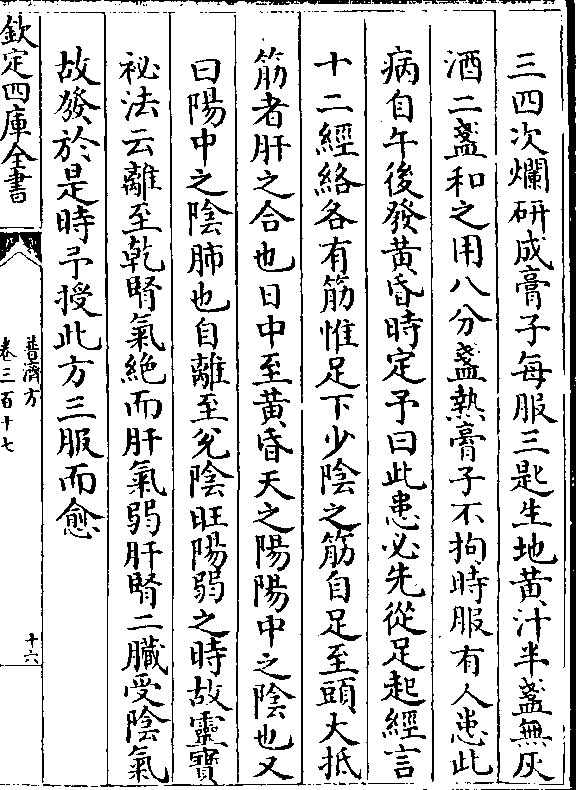 三四次爛研成膏子每服三匙生地黄汁半盞無灰
酒二盞和之用八分盞熱膏子不拘時服有人患此
病自午後發黄昏時定予曰此患必先從足起經言
十二經絡各有筋惟足下少陰之筋自足至頭大抵
筋者肝之合也日中至黄昏天之陽陽中之陰也又
曰陽中之陰肺也自離至兊陰旺陽弱之時故靈寳
祕法云離至乾腎氣絶而肝氣弱肝腎二臟受陰氣
故發於是時予授此方三服而愈
欽定四庫全書
普濟方
卷三百十七
十六